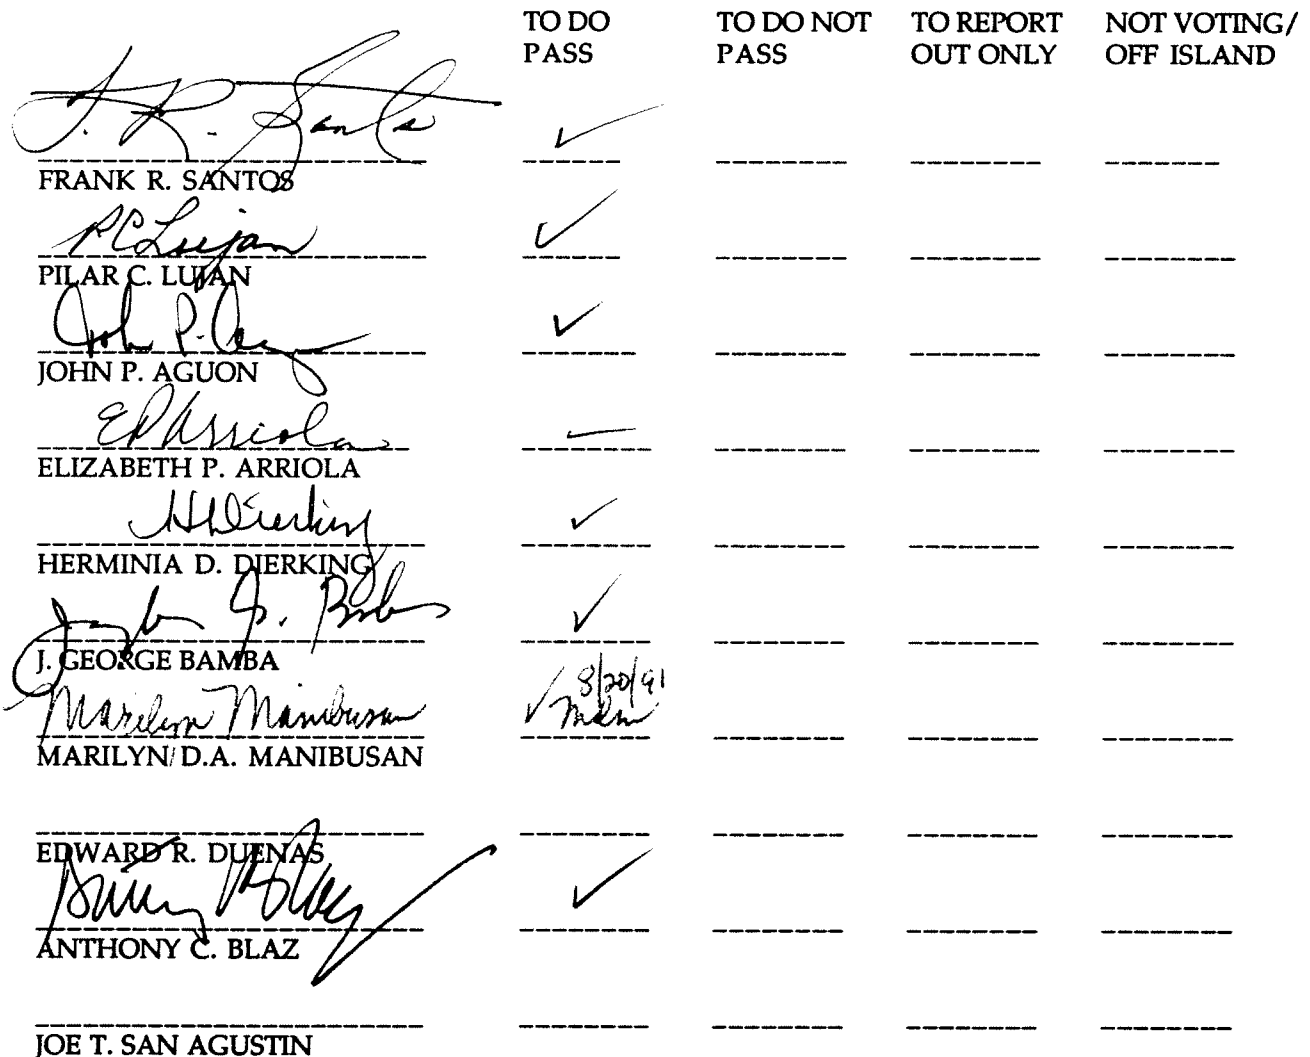 TO DO PASS TO DO NOT PASS TO REPORT OUT ONLY NOT VOTING/ OFF ISLAND
F. R. Santos ✓
FRANK R. SANTOS
PC Lujan ✓
PILAR C. LUJAN
John P. Aguon ✓
JOHN P. AGUON
EPArriola
ELIZABETH P. ARRIOLA
HDDierking ✓
HERMINIA D. DIERKING
J. ✓
J. GEORGE BAMBA
8/20/91
Marilyn Manibusan ✓ mdm
MARILYN D.A. MANIBUSAN
EDWARD R. DUENAS
Blaz ✓
ANTHONY C. BLAZ
JOE T. SAN AGUSTIN